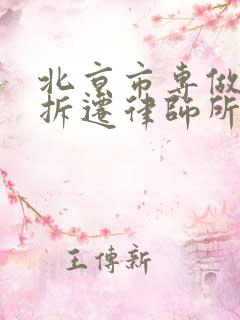 北京市专做
拆遷律師所
王傳新